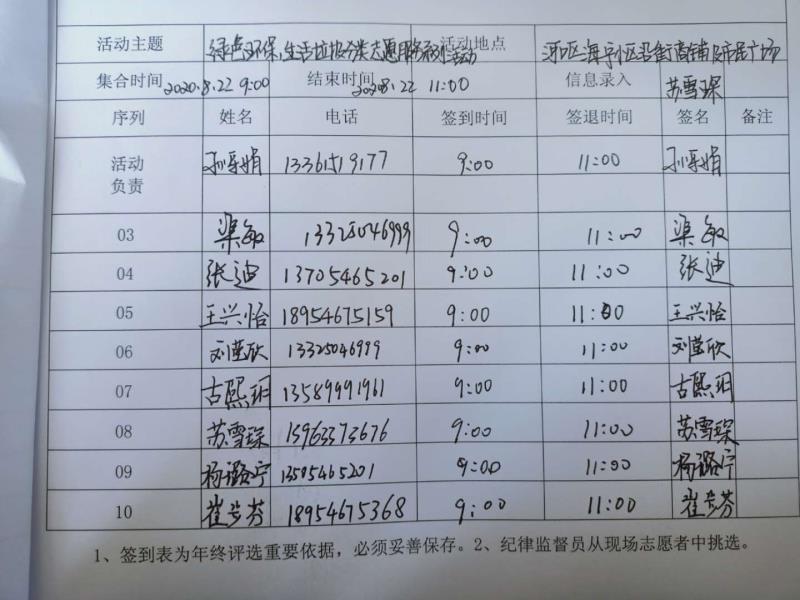 活动主题 绿色环保,生活垃圾分类志愿服务系列活动 活动地点 河区海宁小区沿街商铺及市民广场
集合时间 2020.8.22 9:00 结束时间 2020.8.22 11:00 信息录入 苏雪琛
序列 姓名 电话 签到时间 签退时间 签名 备注
活动负责 娟 13361519177 9:00 11:00 娟
03 梁敏 13325046999 9:00 11:00 梁敏
04 张迪 13705465201 9:00 11:00 张迪
05 王兴怡 18954675159 9:00 11:00 王兴怡
06 刘莹欣 13325046999 9:00 11:00 刘莹欣
07 古熙玥 13589991961 9:00 11:00 古熙玥
08 苏雪琛 15963373676 9:00 11:00 苏雪琛
09 杨璐宁 13505465201 9:00 11:00 杨璐宁
10 崔梦芬 18954675368 9:00 11:00 崔梦芬
1、签到表为年终评选重要依据,必须妥善保存。2、纪律监督员从现场志愿者中挑选。